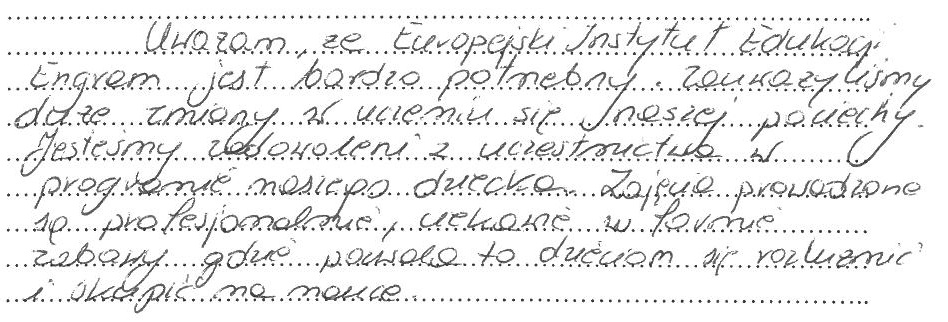 Uważam, że Europejski Instytut Edukacji
Engram jest bardzo potrzebny. Zauważyliśmy
duże zmiany w uczeniu się naszej pociechy.
Jesteśmy zadowoleni z uczestnictwa w
programie naszego dziecka. Zajęcia prowadzone
są profesjonalnie, ciekawie w formie
zabawy gdzie pozwala to dzieciom się rozluźnić
i skupić na nauce.